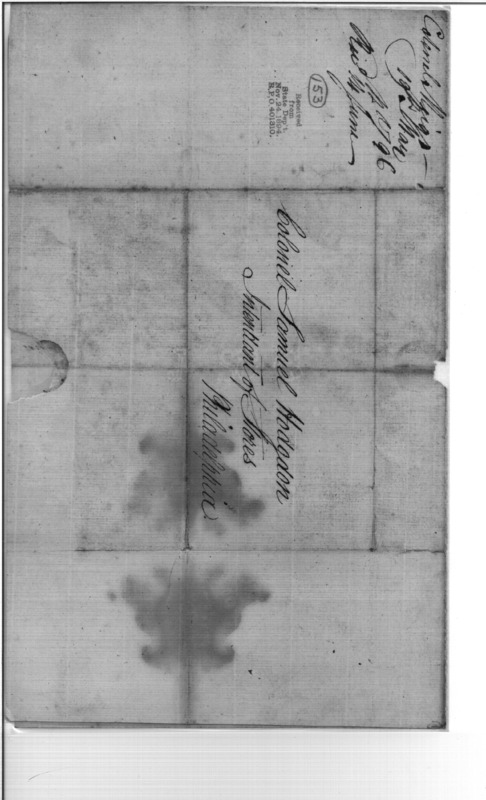 Colonel
19th May
1796
Rec'd 14 June
153
Received
from
State Dep't.
Nov 24, 1894.
R.P.O. 401310.
Colonel Samuel Hodgdon
Intendant of Stores
Philadelphia